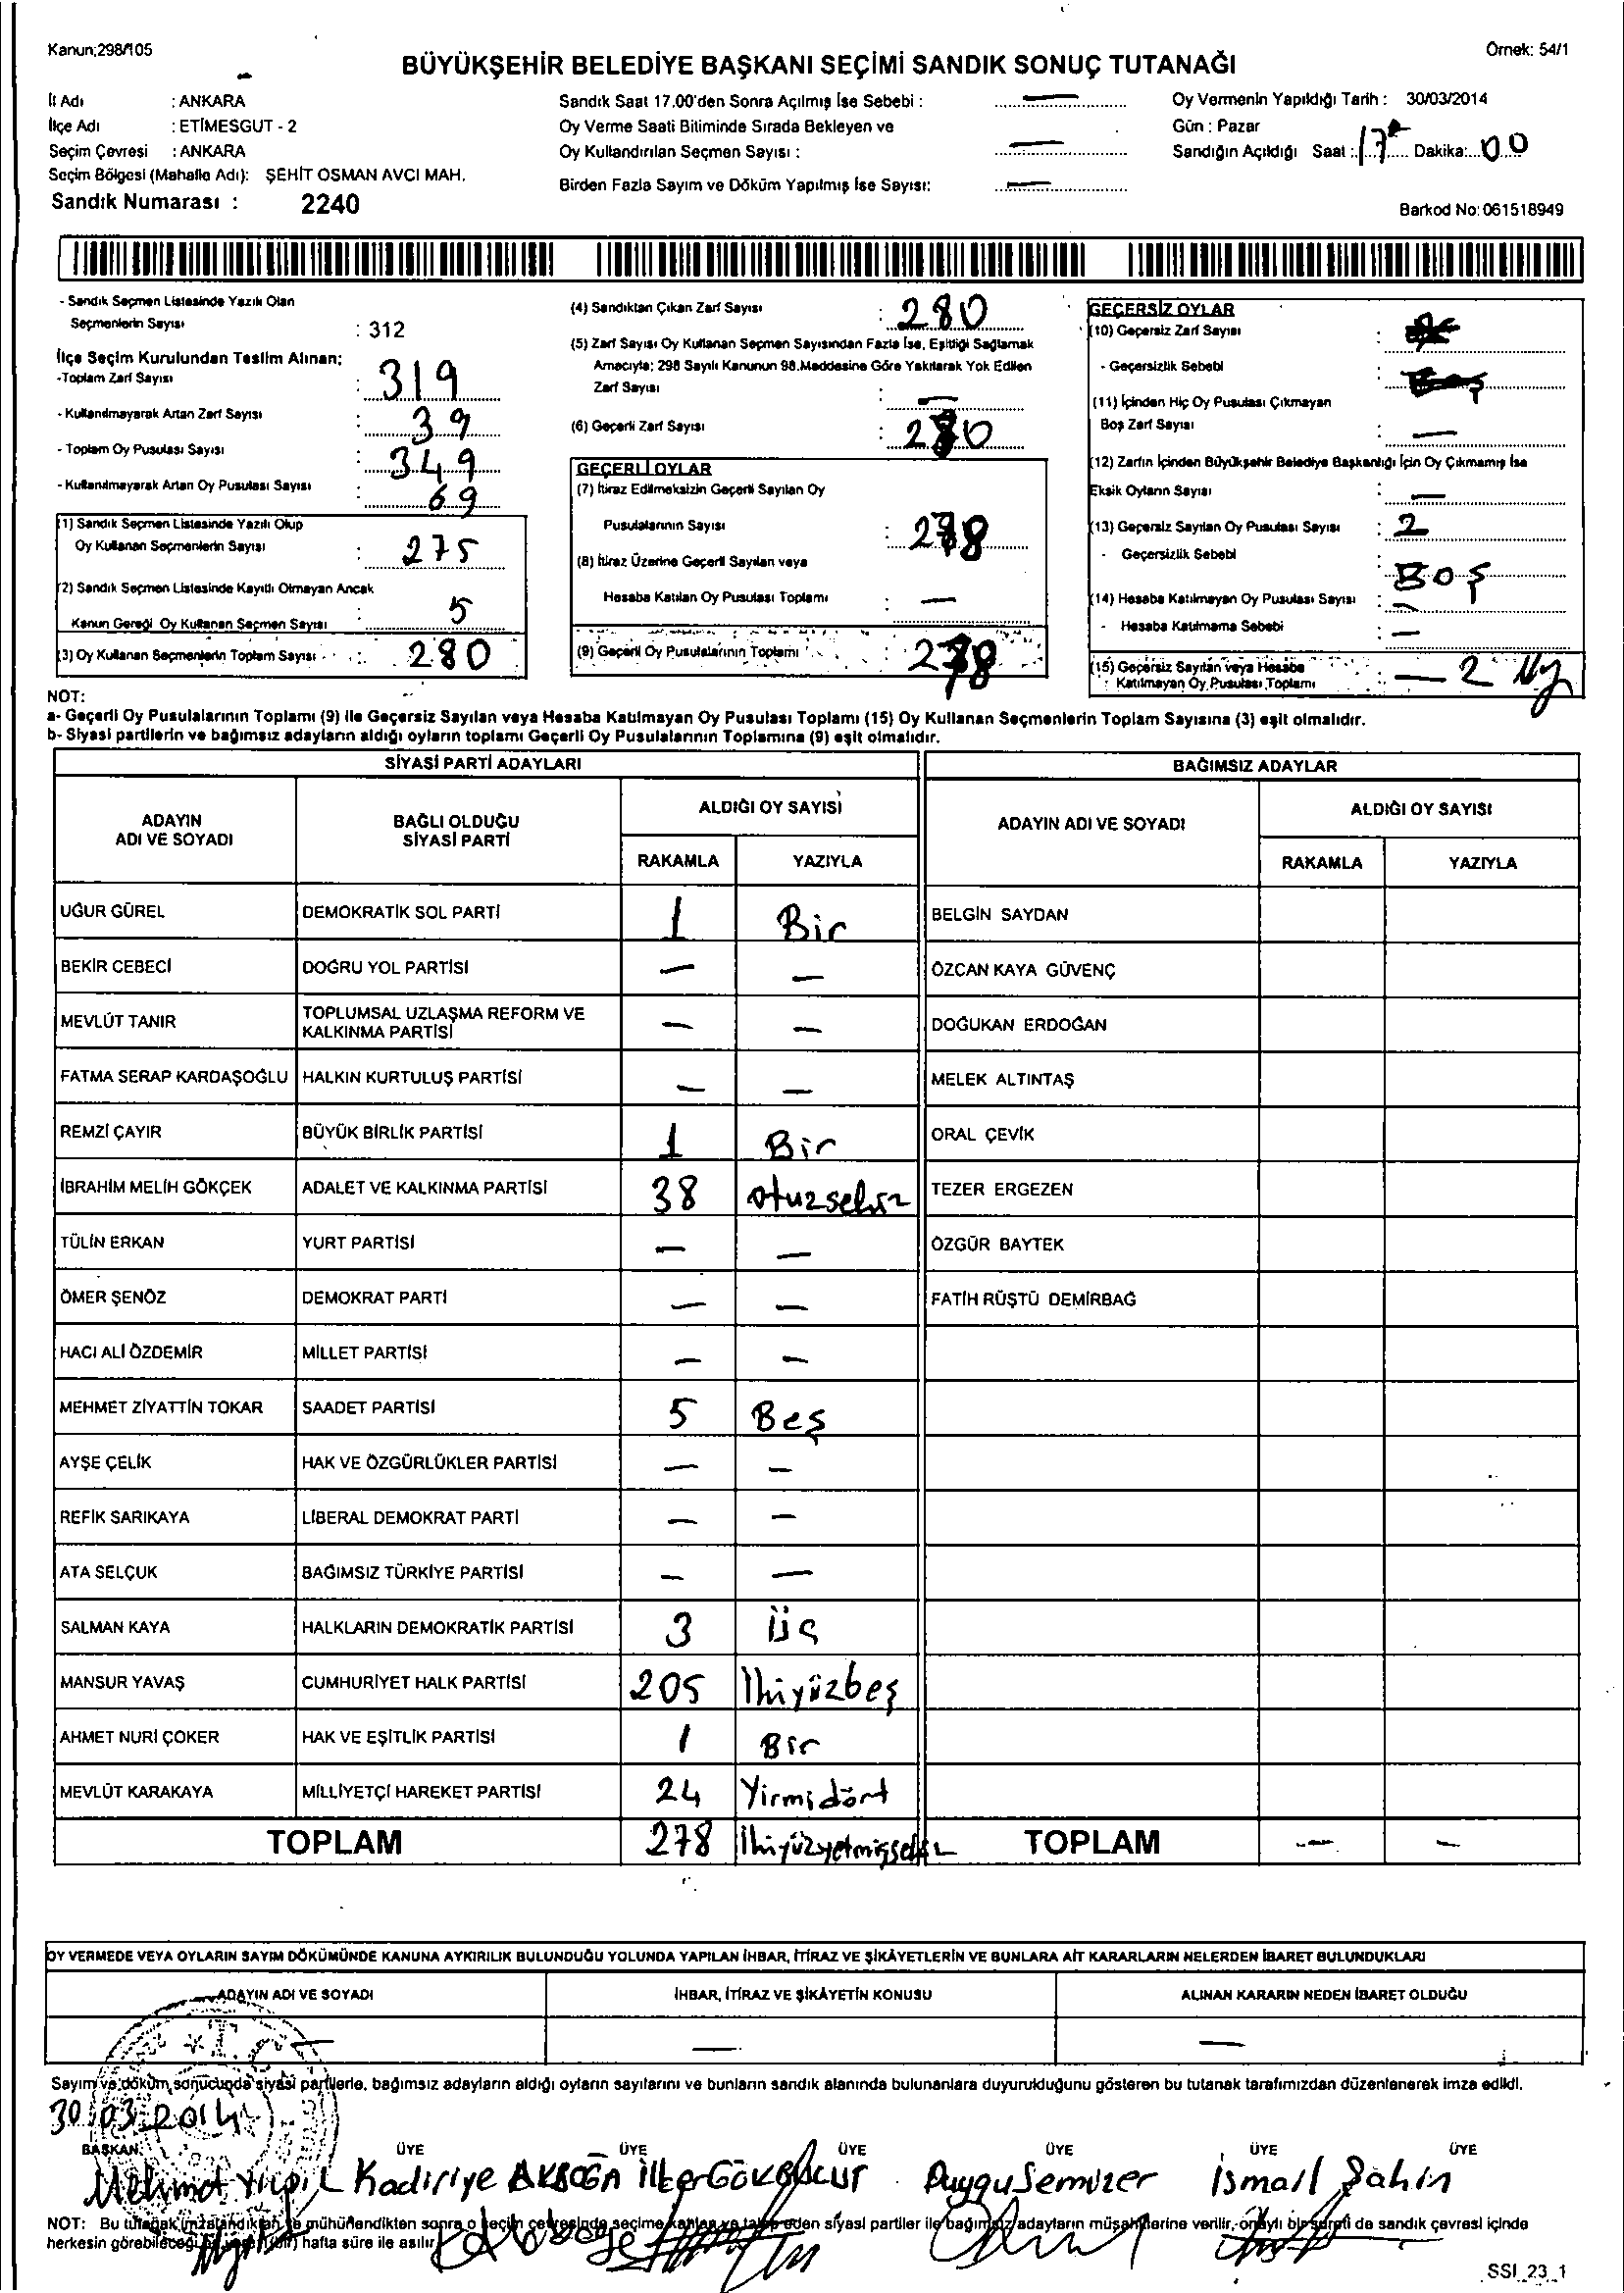 Kanun;298/105
Örnek: 54/1
BÜYÜKŞEHİR BELEDİYE BAŞKANI SEÇİMİ SANDIK SONUÇ TUTANAĞI
İl Adı : ANKARA
İlçe Adı : ETİMESGUT - 2
Seçim Çevresi : ANKARA
Seçim Bölgesi (Mahalle Adı): ŞEHİT OSMAN AVCI MAH.
Sandık Numarası : 2240
Sandık Saat 17.00'den Sonra Açılmış İse Sebebi : —
Oy Verme Saati Bitiminde Sırada Bekleyen ve
Oy Kullandırılan Seçmen Sayısı : —
Birden Fazla Sayım ve Döküm Yapılmış İse Sayısı: —
Oy Vermenin Yapıldığı Tarih : 30/03/2014
Gün : Pazar
Sandığın Açıldığı Saat : 17 Dakika: 00
Barkod No: 061518949
- Sandık Seçmen Listesinde Yazılı Olan
Seçmenlerin Sayısı : 312
İlçe Seçim Kurulundan Teslim Alınan;
-Toplam Zarf Sayısı : 319
- Kullanılmayarak Artan Zarf Sayısı : 39
- Toplam Oy Pusulası Sayısı : 349
- Kullanılmayarak Artan Oy Pusulası Sayısı : 69
(1) Sandık Seçmen Listesinde Yazılı Olup
Oy Kullanan Seçmenlerin Sayısı : 275
(2) Sandık Seçmen Listesinde Kayıtlı Olmayan Ancak
Kanun Gereği Oy Kullanan Seçmen Sayısı : 5
(3) Oy Kullanan Seçmenlerin Toplam Sayısı : 280
(4) Sandıktan Çıkan Zarf Sayısı : 280
(5) Zarf Sayısı Oy Kullanan Seçmen Sayısından Fazla İse, Eşitliği Sağlamak
Amacıyla; 298 Sayılı Kanunun 98.Maddesine Göre Yakılarak Yok Edilen
Zarf Sayısı : —
(6) Geçerli Zarf Sayısı : 280
GEÇERLİ OYLAR
(7) İtiraz Edilmeksizin Geçerli Sayılan Oy
Pusulalarının Sayısı : 278
(8) İtiraz Üzerine Geçerli Sayılan veya
Hesaba Katılan Oy Pusulası Toplamı : —
(9) Geçerli Oy Pusulalarının Toplamı : 278
GEÇERSİZ OYLAR
(10) Geçersiz Zarf Sayısı :
- Geçersizlik Sebebi :
(11) İçinden Hiç Oy Pusulası Çıkmayan
Boş Zarf Sayısı : —
(12) Zarfın İçinden Büyükşehir Belediye Başkanlığı İçin Oy Çıkmamış İse
Eksik Oyların Sayısı : —
(13) Geçersiz Sayılan Oy Pusulası Sayısı : 2
- Geçersizlik Sebebi : Boş
(14) Hesaba Katılmayan Oy Pusulası Sayısı : —
- Hesaba Katılmama Sebebi : —
(15) Geçersiz Sayılan veya Hesaba
Katılmayan Oy Pusulası Toplamı : — 2
NOT:
a- Geçerli Oy Pusulalarının Toplamı (9) ile Geçersiz Sayılan veya Hesaba Katılmayan Oy Pusulası Toplamı (15) Oy Kullanan Seçmenlerin Toplam Sayısına (3) eşit olmalıdır.
b- Siyasi partilerin ve bağımsız adayların aldığı oyların toplamı Geçerli Oy Pusulalarının Toplamına (9) eşit olmalıdır.
SİYASİ PARTİ ADAYLARI
ADAYIN ADI VE SOYADI
BAĞLI OLDUĞU SİYASİ PARTİ
ALDIĞI OY SAYISI
RAKAMLA YAZIYLA
UĞUR GÜREL DEMOKRATİK SOL PARTİ 1 Bir
BEKİR CEBECİ DOĞRU YOL PARTİSİ — —
MEVLÜT TANIR TOPLUMSAL UZLAŞMA REFORM VE KALKINMA PARTİSİ — —
FATMA SERAP KARDAŞOĞLU HALKIN KURTULUŞ PARTİSİ — —
REMZİ ÇAYIR BÜYÜK BİRLİK PARTİSİ 1 Bir
İBRAHİM MELİH GÖKÇEK ADALET VE KALKINMA PARTİSİ 38 otuzsekiz
TÜLİN ERKAN YURT PARTİSİ — —
ÖMER ŞENÖZ DEMOKRAT PARTİ — —
HACI ALİ ÖZDEMİR MİLLET PARTİSİ — —
MEHMET ZİYATTİN TOKAR SAADET PARTİSİ 5 Beş
AYŞE ÇELİK HAK VE ÖZGÜRLÜKLER PARTİSİ — —
REFİK SARIKAYA LİBERAL DEMOKRAT PARTİ — —
ATA SELÇUK BAĞIMSIZ TÜRKİYE PARTİSİ — —
SALMAN KAYA HALKLARIN DEMOKRATİK PARTİSİ 3 Üç
MANSUR YAVAŞ CUMHURİYET HALK PARTİSİ 205 İkiyüzbeş
AHMET NURİ ÇOKER HAK VE EŞİTLİK PARTİSİ 1 Bir
MEVLÜT KARAKAYA MİLLİYETÇİ HAREKET PARTİSİ 24 Yirmidört
TOPLAM 278 İkiyüzyetmişsekiz
BAĞIMSIZ ADAYLAR
ADAYIN ADI VE SOYADI
ALDIĞI OY SAYISI
RAKAMLA YAZIYLA
BELGİN SAYDAN
ÖZCAN KAYA GÜVENÇ
DOĞUKAN ERDOĞAN
MELEK ALTINTAŞ
ORAL ÇEVİK
TEZER ERGEZEN
ÖZGÜR BAYTEK
FATİH RÜŞTÜ DEMİRBAĞ
TOPLAM — —
OY VERMEDE VEYA OYLARIN SAYIM DÖKÜMÜNDE KANUNA AYKIRILIK BULUNDUĞU YOLUNDA YAPILAN İHBAR, İTİRAZ VE ŞİKÂYETLERİN VE BUNLARA AİT KARARLARIN NELERDEN İBARET BULUNDUKLARI
ADAYIN ADI VE SOYADI İHBAR, İTİRAZ VE ŞİKÂYETİN KONUSU ALINAN KARARIN NEDEN İBARET OLDUĞU
— — —
Sayım ve döküm sonucunda siyasi partilerle, bağımsız adayların aldığı oyların sayılarını ve bunların sandık alanında bulunanlara duyurulduğunu gösteren bu tutanak tarafımızdan düzenlenerek imza edildi.
30.03.2014
BAŞKAN ÜYE ÜYE ÜYE ÜYE ÜYE ÜYE
Mehmet Kadiriye İlker Duygu Semizer İsmail Şahin
NOT: Bu tutanak imzalandıktan ve mühürlendikten sonra o seçim çevresinde seçime katılan ve talep eden siyasi partiler ile bağımsız adayların müşahitlerine verilir, onaylı bir sureti de sandık çevresi içinde
herkesin görebileceği hafta süre ile asılır
SSI_23_1